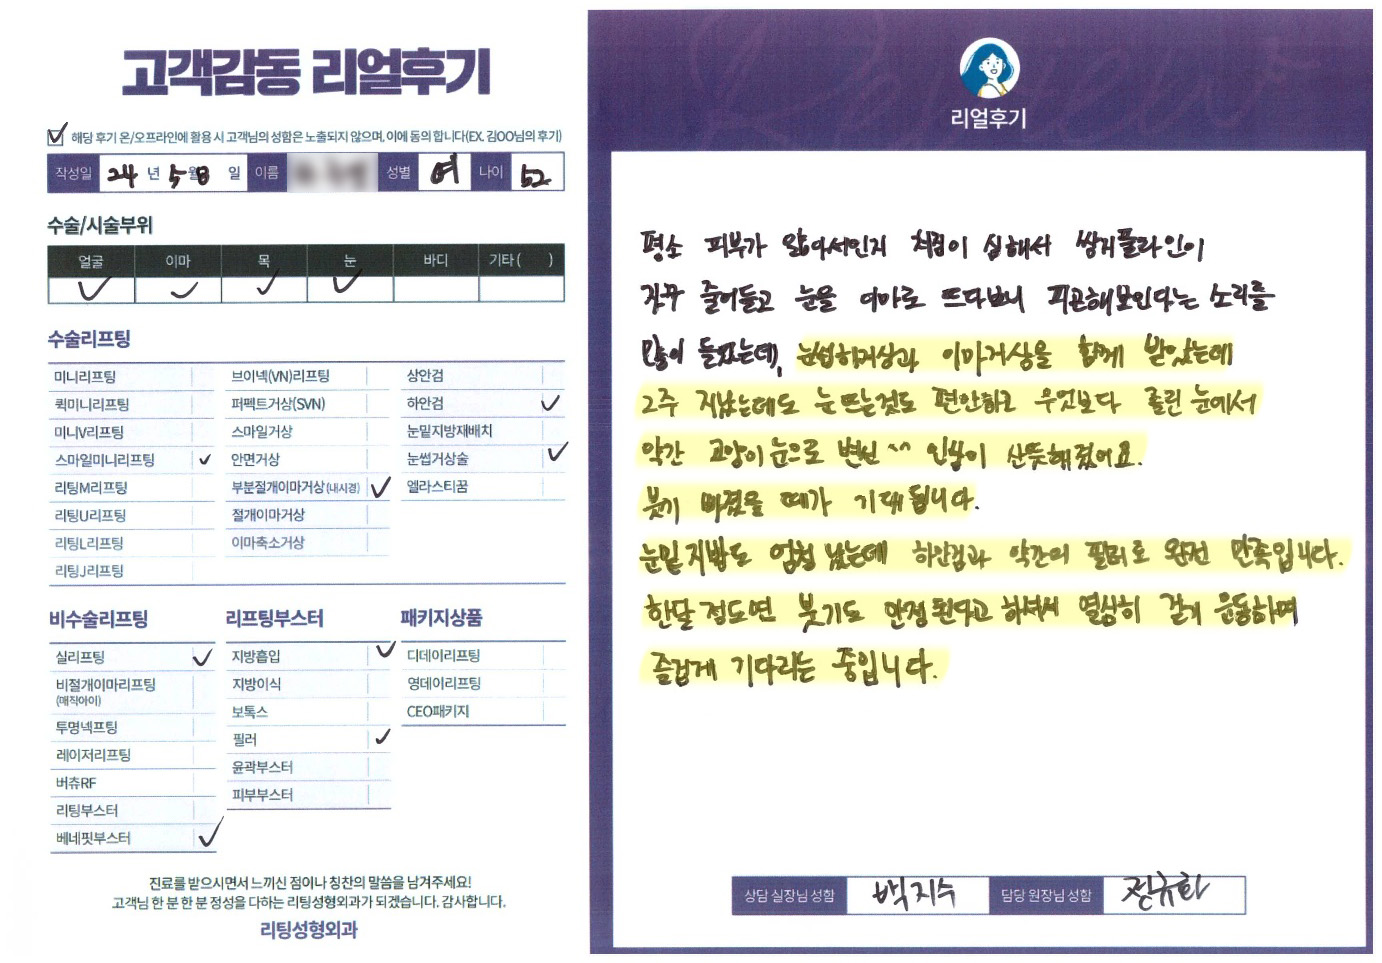 고객감동 리얼후기
해당 후기 온/오프라인에 활용 시 고객님의 성함은 노출되지 않으며, 이에 동의 합니다(EX. 김OO님의 후기)
작성일 24 년 5월 8 일 이름 성별 여 나이 52
수술/시술부위
얼굴 이마 목 눈 바디 기타 ( )
수술리프팅
미니리프팅
퀵미니리프팅
미니V리프팅
스마일미니리프팅
리팅M리프팅
리팅U리프팅
리팅L리프팅
리팅J리프팅
브이넥(VN)리프팅
퍼펙트거상(SVN)
스마일거상
안면거상
부분절개이마거상(내시경)
절개이마거상
이마축소거상
상안검
하안검
눈밑지방재배치
눈썹거상술
엘라스티꿈
비수술리프팅
실리프팅
비절개이마리프팅
(매직아이)
투명넥프팅
레이저리프팅
버츄RF
리팅부스터
베네핏부스터
리프팅부스터
지방흡입
지방이식
보톡스
필러
윤곽부스터
피부부스터
패키지상품
디데이리프팅
영데이리프팅
CEO패키지
진료를 받으시면서 느끼신 점이나 칭찬의 말씀을 남겨주세요!
고객님 한 분 한 분 정성을 다하는 리팅성형외과가 되겠습니다. 감사합니다.
리팅성형외과
리얼후기
평소 피부가 얇아서인지 처짐이 심해서 쌍커풀라인이
자꾸 줄어들고 눈을 이마로 뜨다보니 피곤해보인다는 소리를
많이 들었는데, 눈썹하거상과 이마거상을 함께 받았는데
2주 지났는데도 눈 뜨는것도 편안하고 무엇보다 졸린 눈에서
약간 고양이 눈으로 변신 ^^ 인상이 산뜻해졌어요.
붓기 빠졌을 때가 기대됩니다.
눈밑지방도 엄청 났는데 하안검과 약간의 필러로 완전 만족입니다.
한달 정도면 붓기도 안정된다고 하셔서 열심히 걷기 운동하며
즐겁게 기다리는 중입니다.
상담 실장님 성함 백지수 담당 원장님 성함 정규화